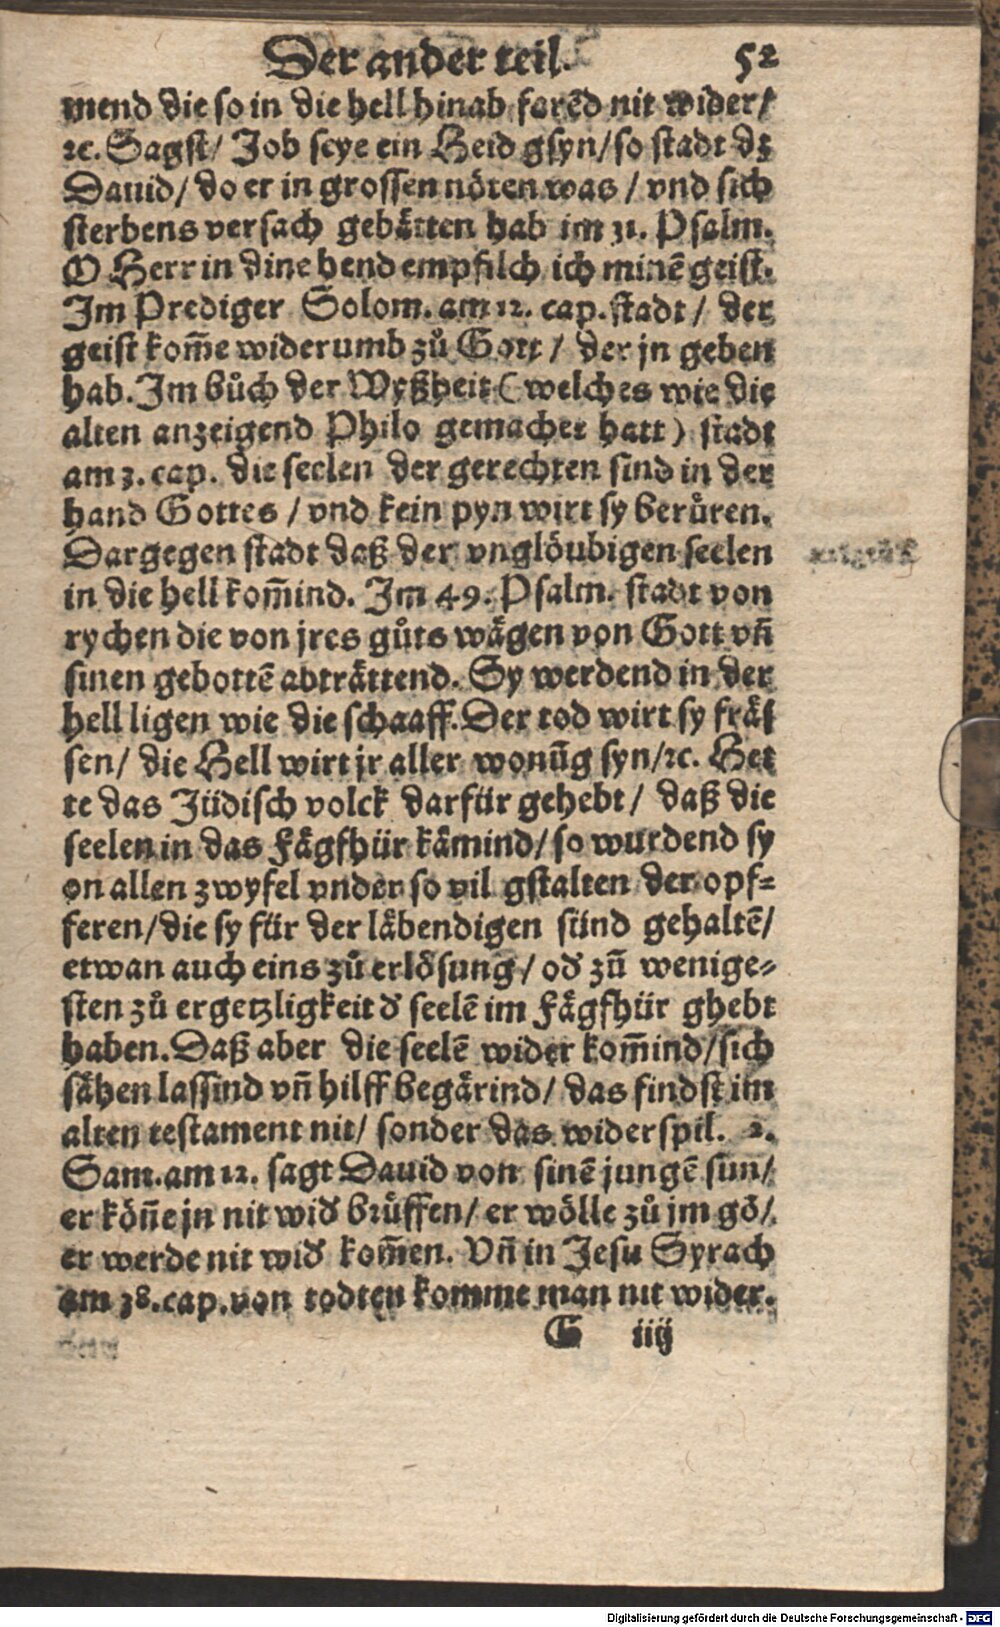 Der ander teil. 52
mend die so in die hell hinab farēd nit wider/
ꝛc. Sagst/ Job seye ein Heid gsyn/ so stadt dz
Dauid/ do er in grossen nöten was / vnd sich
sterbens versach gebätten hab im 31. Psalm.
O Herr in dine hend empfilch ich minē geist.
Im Prediger Solom. am 12. cap. stadt / der
geist kom̃e widerumb zů Gott / der jn geben
hab. Im Bůch der Wyßheit ( welches wie die
alten anzeigend Philo gemachet hatt ) stadt
am 3. cap. die seelen der gerechten sind in der
hand Gottes / vnd kein pyn wirt sy berüren.
Dargegen stadt daß der vnglöubigen seelen
in die hell kom̃ind. Im 49. Psalm. stadt von
rychen die von jres gůts wägen von Gott vn̄
sinen gebottē abträttend. Sy werdend in der
hell ligen wie die schaaff. Der tod wirt sy fräs
sen/ die Hell wirt jr aller wonūg syn/ꝛc. Het
te das Jüdisch volck darfür gehebt/ daß die
seelen in das Fägfhür kämind/ so wurdend sy
on allen zwyfel vnder so vil gstalten der opf-
feren/ die sy für der läbendigen sünd gehaltē/
etwan auch eins zů erlösung/ od̄ zū wenige-
sten zů ergetzligkeit d̄ seelē im Fägfhür ghebt
haben. Daß aber die seelē wider kom̃ind/ sich
sähen lassind vn̄ hilff begärind/ das findst im
alten testament nit/ sonder das widerspil. 2.
Sam. am 12. sagt Dauid von sinē jungē sun/
er kön̄e jn nit wid̄ brüffen/ er wölle zů jm gō/
er werde nit wid̄ kom̃en. Vn̄ in Jesu Syrach
am 38. cap. von todten komme man nit wider.
G iiij
Digitalisierung gefördert durch die Deutsche Forschungsgemeinschaft - DFG